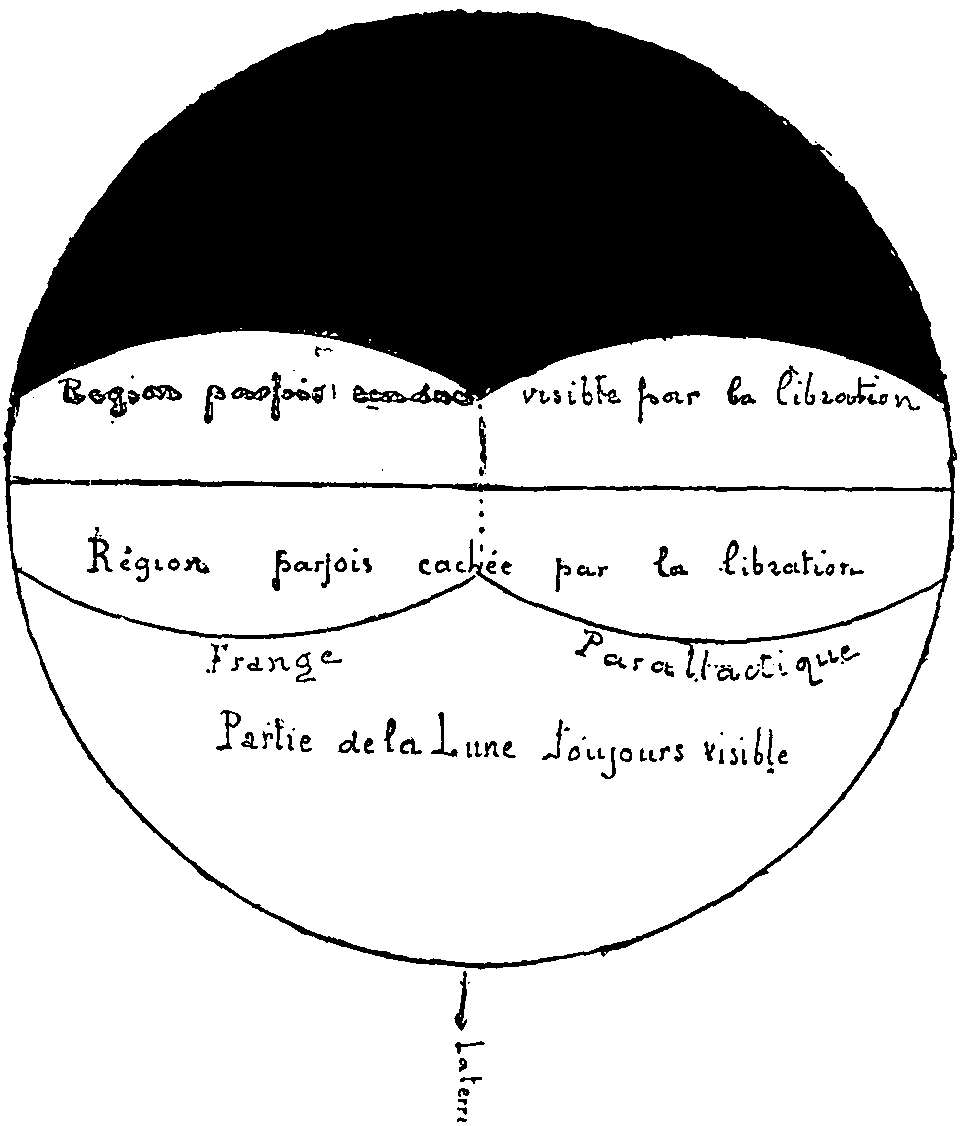 Region parfois rendue visible par la libration
Région parfois cachée par la libration
Frange Parallactique
Partie de la Lune toujours visible
La terre